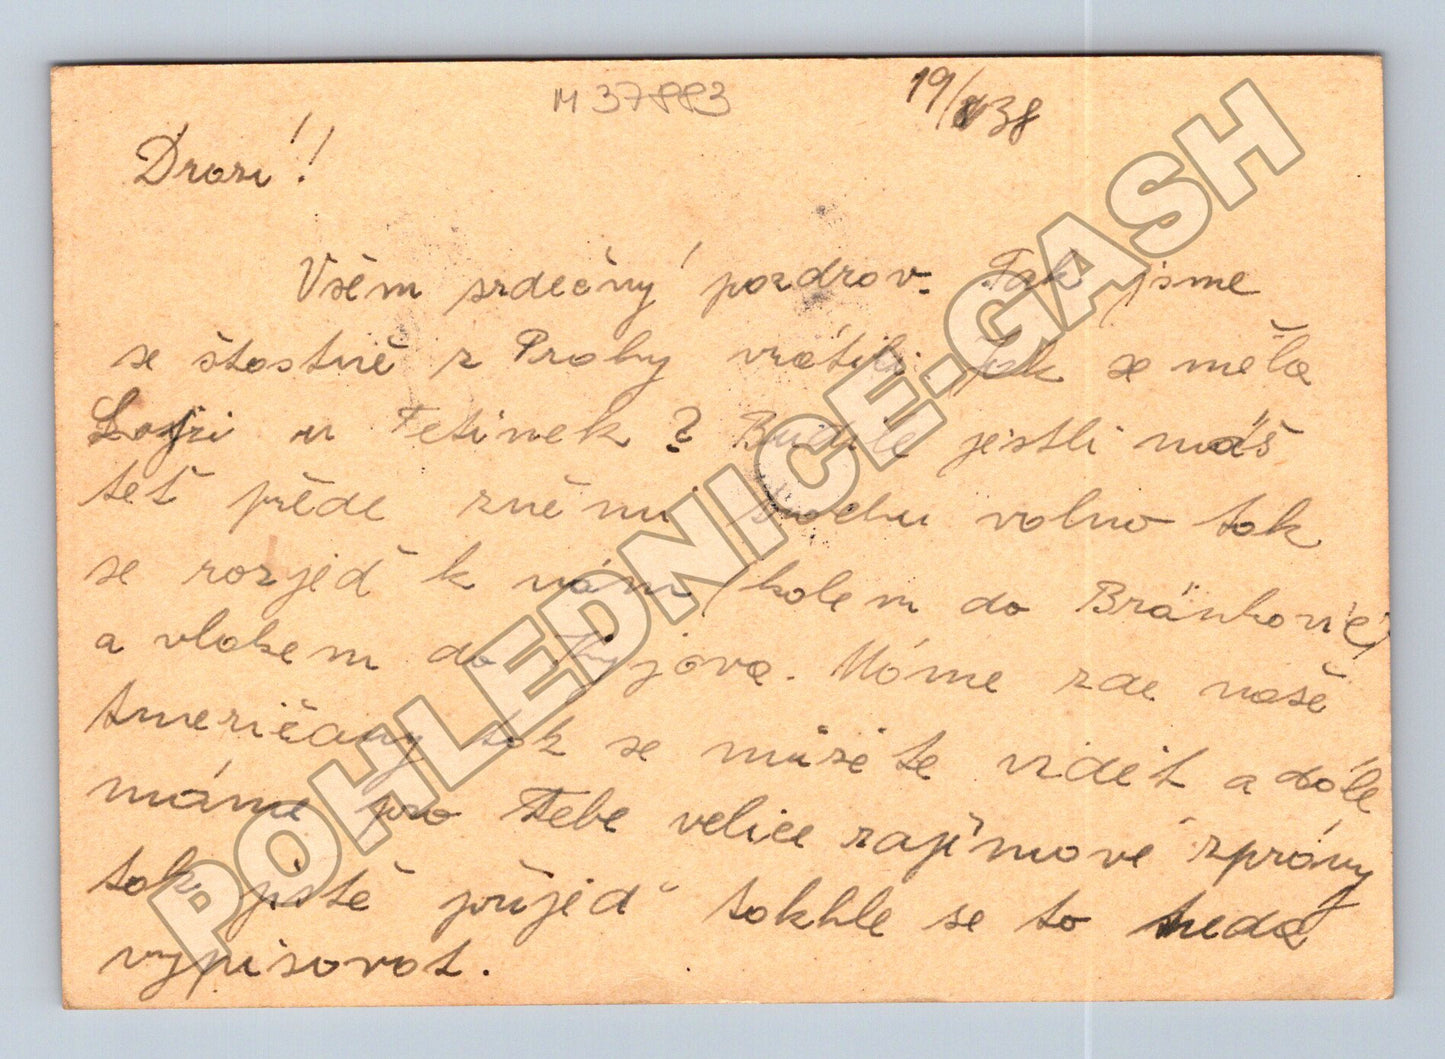 M 37883
19/8 38
Drazí!!
Všem srdečný pozdrav. Tak jsme
se štastně z Prahy vrátili. Jak se měla
u Fetinek? Budete jestli máš
teť přede žněmi trochu volno tak
se rozjeď k nám (kolem do Bránkovic
a vlakem do Kyjova. Máme zde naše
Američany tak se můžete vidět a dále
máme pro Tebe velice zajímavé zprávy
tak jistě přijeď takhle se to nedá
vypisovat.
POHLEDNICE.GASH